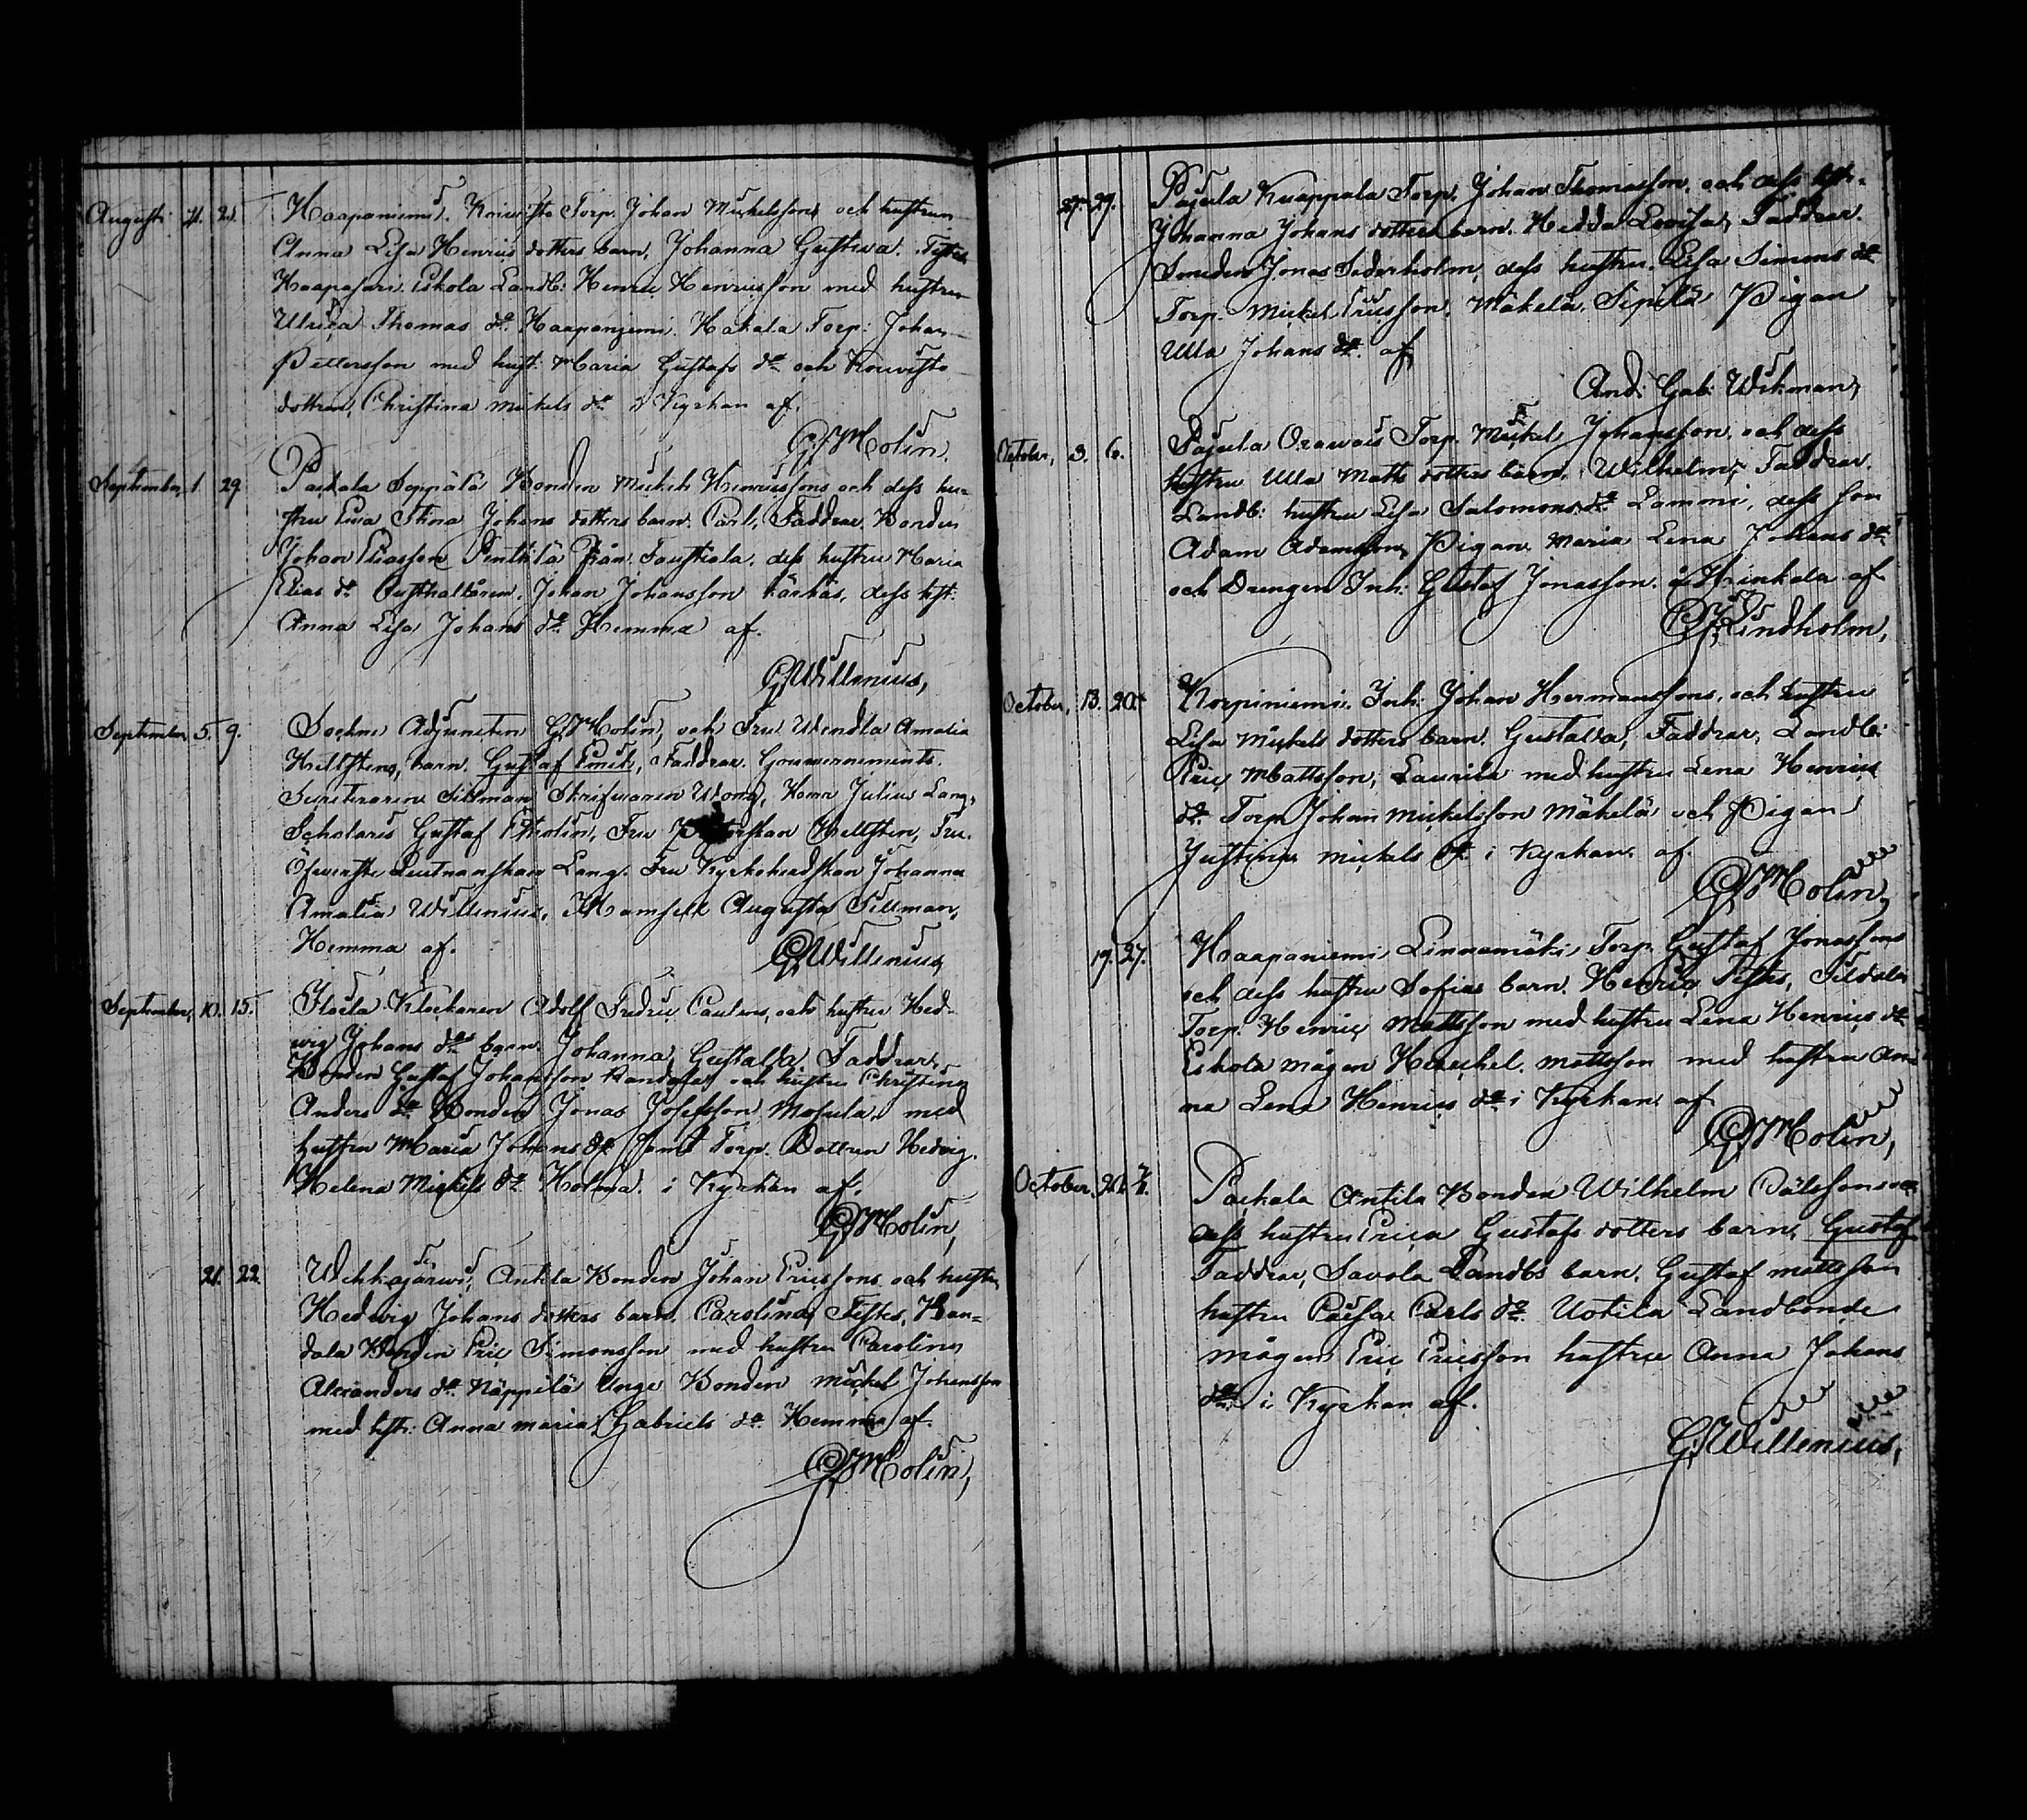 Augusti 11. 21. Haapaniemi, Koivisto Torp. Johan Mickelssons och hustrun
Anna Lisa Henrics dotters barn, Johanna Gustava. Testes
Haapasari Eskola Landb: Henric Henricsson med hustrun
Ulrica Thomas dr. Haapaniemi Hakala Torp: Johan
Pettersson med hust: Maria Gustafs dr och Koivisto
dottren, Christina Mickels dr i Kyrkan af.
G Molin.
September, 1. 29. Seppälä Bonden Mickels Henricssons och dess hu-
stru Eva Stina Johans dotters barn. Carl, Faddrar Bonden
Johan Eliasson Penttilä från dess hustru Maria
Elias dr Johan Johansson Kärkäs, dess hst.
Anna Lisa Johans dr Hemma af.
G. Willenius,
September 5. 9. Sockne Adjuncten G. Molins, och Fru Wendla Amalia
Hellstens, barn, Gustaf Emil, Faddrar Gouvernements
Secreteraren Sillman Skrifvaren Herr Julius Lang,
Scholaris Gustaf Fru Hellsten, Fru
Öfverste Leutnanskan Lang. Fru Kyrkoherdskan Johanna
Amalia Willenius, Mamsell Augusta Sillman,
Hemma af.
G. Willenius,
September, 10. 15. Klockaren Adolf Fredric och hustru Hed-
wig Johans drs barn Johanna, Gustava Faddrar,
Bonden Gustaf Johansson och hustru Christina
Anders dr Bonden Jonas Josefsson med
hustru Maria Johans dr Torp. Dottren Hedvig
Helena Mickels dr Holma. i Kyrkan af.
G. Molin,
21. 22. Wehkajärvi, Anttila Bonden Johan Ericssons och hustru
Hedwig Johans dotters barn, Carolina, Testes, Ban-
dala Bonden Eric Simonsson med hustru Carolina
Alexanders dr. Näppilä Unge Bonden Mickel Johansson
med hstr: Anna Maria Gabriels dr Hemma af.
G. Molin,
27. 29. Pajula Knappala Torp. Johan Thomasson, och dess hstr.
Johanna Johans dotters barn. Hedda Lovisa, Faddrar.
Smeden Jonas Sederholm, dess hustru. Lisa Simons dr
Torp. Mickel Ericsson, Mäkelä, Sipilä Pigan
Ulla Johans dr. af
And: Gab: Wikman,
October, 3. 6. Pajula Torp. Mickel Johansson, och dess
hustru Ulla Matts dotters barn, Wilhelm, Faddrar.
Landb: hustru Lisa Salomons dr Lammi, dess son
Adam Adamsson, Pigan Maria Lena Johans dr
och Drengen Inh: Gustaf Jonasson å af
Lindholm,
October, 13. 20. Korpiniemi Inh: Johan Hermanssons, och hustru
Lisa Mickels dotters barn. Gustava, Faddrar, Landb:
Eric Mattsson, Laurila med hustru Lena Henrics
dr Torp Johan Mickelsson Mäkelä och Pigan
Justina Mickels dr i Kyrkan af
G. Molin,
19. 27. Haapaniemi Linnamäki, Torp. Gustaf Jonassons
och dess hustru Sofias barn. Henric Testes,
Torp. Henric Mattsson med hustru Lena Henrics dr
Eskola mågen Heschel Mattsson med hustru An-
na Lena Henrics dr i Kyrkan af
G. Molin,
October, Antila Bonden Wilhelm och
dess hustru Erica Gustafs dotters barn, Gustaf
Faddrar, Savola Landbs barn, Gustaf Mattsson
hustru Caisa Carls dr. Uotila Landbonde
mågen Eric Ericsson hustru Anna Johans
dr i Kyrkan af.
G. Willenius,